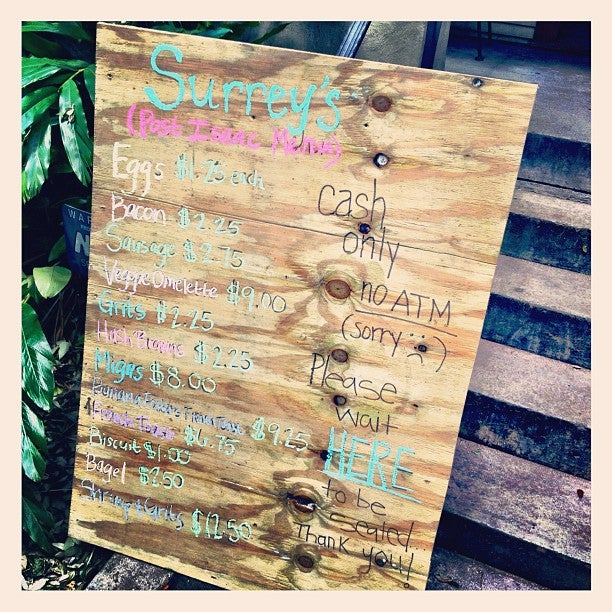 Surrey's
(Post Isaac Menu)
Eggs $1.25 each
Bacon $2.25
Sausage $2.75
Veggie Omelette $9.00
Grits $2.25
Hash Browns $2.25
Migas $8.00
French Toast $9.25
French Toast $6.75
Biscuit $1.00
Bagel $2.50
Shrimp & Grits $12.50
cash
only
no ATM
(sorry :( )
Please
wait
HERE
to be
seated...
Thank you!